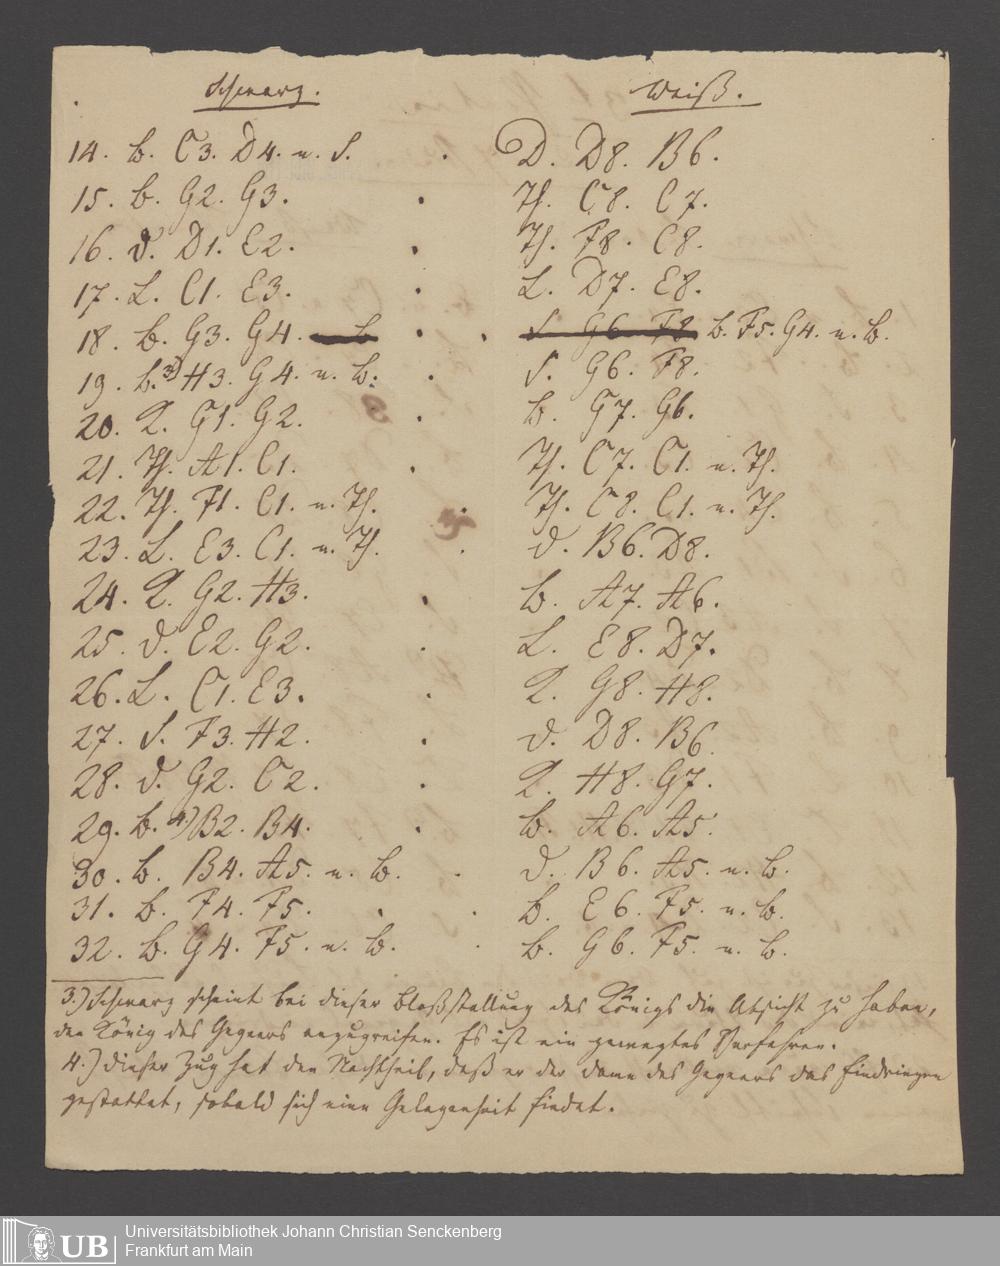 Schwarz. Weiß.
14. b. C3. D4. u. S. D. D8. B6.
15. b. G2. G3. Th. C8. C7.
16. d. D1. E2. Th. F8. C8.
17. L. C1. E3. L. D7. E8.
18. b. G3. G4. b S. G6. F8 b. F5. G4. u. b.
19. b. 3) H3. G4. u. b. S. G6. F8.
20. K. G1. G2. b. G7. G6.
21. Th. A1. C1. Th. C7. C1. u. Th.
22. Th. F1. C1. u. Th. Th. C8. C1. u. Th.
23. L. E3. C1. u. Th. d. B6. D8.
24. K. G2. H3. b. A7. A6.
25. d. E2. G2. L. E8. D7.
26. L. C1. E3. K. G8. H8.
27. S. F3. H2. d. D8. B6
28. d. G2. C2. K. H8. G7.
29. b. 4) B2. B4. b. A6. A5.
30. b. B4. A5. u. b. d. B6. A5. u. b.
31. b. F4. F5. b. E6. F5. u. b.
32. b. G4. F5. u. b. b. G6. F5. u. b.
3.) Schwarz scheint bei dieser Bloßstellung des Königs die Absicht zu haben,
den König des Gegners anzugreifen. Es ist ein gewagtes Verfahren.
4.) Dieser Zug hat den Nachtheil, daß er der Dame des Gegners das Eindringen
gestattet, sobald sich eine Gelegenheit findet.
UB
Universitätsbibliothek Johann Christian Senckenberg
Frankfurt am Main